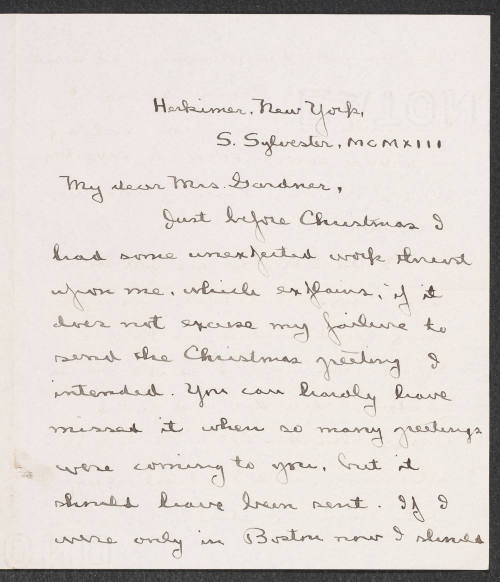 Herkimer, New York,
S. Sylvester, MCMXIII
My dear Mrs. Gardner,
Just before Christmas I
had some unexpected work thrust
upon me, which explains, if it
does not excuse my failure to
send the Christmas greeting I
intended. You can hardly have
missed it when so many greetings
were coming to you, but it
should have been sent. If I
were only in Boston now I should